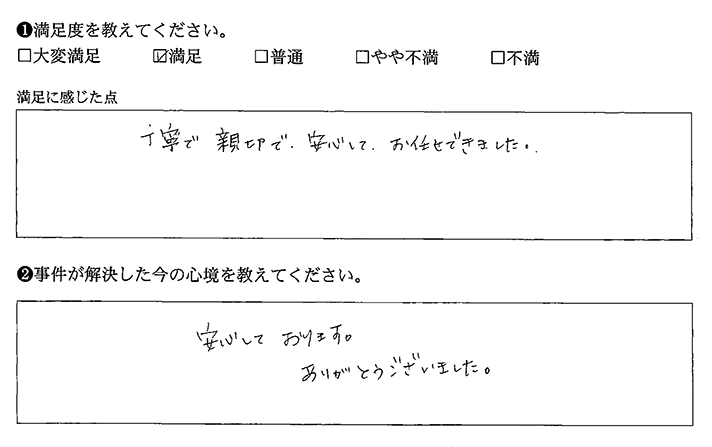 ❶満足度を教えてください。
□大変満足 ☑満足 □普通 □やや不満 □不満
満足に感じた点
丁寧で親切で、安心して、お任せできました。
❷事件が解決した今の心境を教えてください。
安心しております。
ありがとうございました。